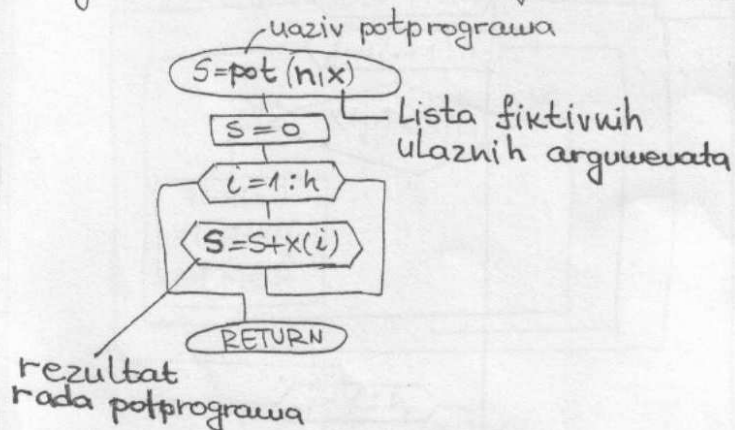 naziv potprograma
S=pot(n,x)
Lista fiktivnih
ulaznih argumenata
S=0
i=1:n
S=S+x(i)
RETURN
rezultat
rada potprograma